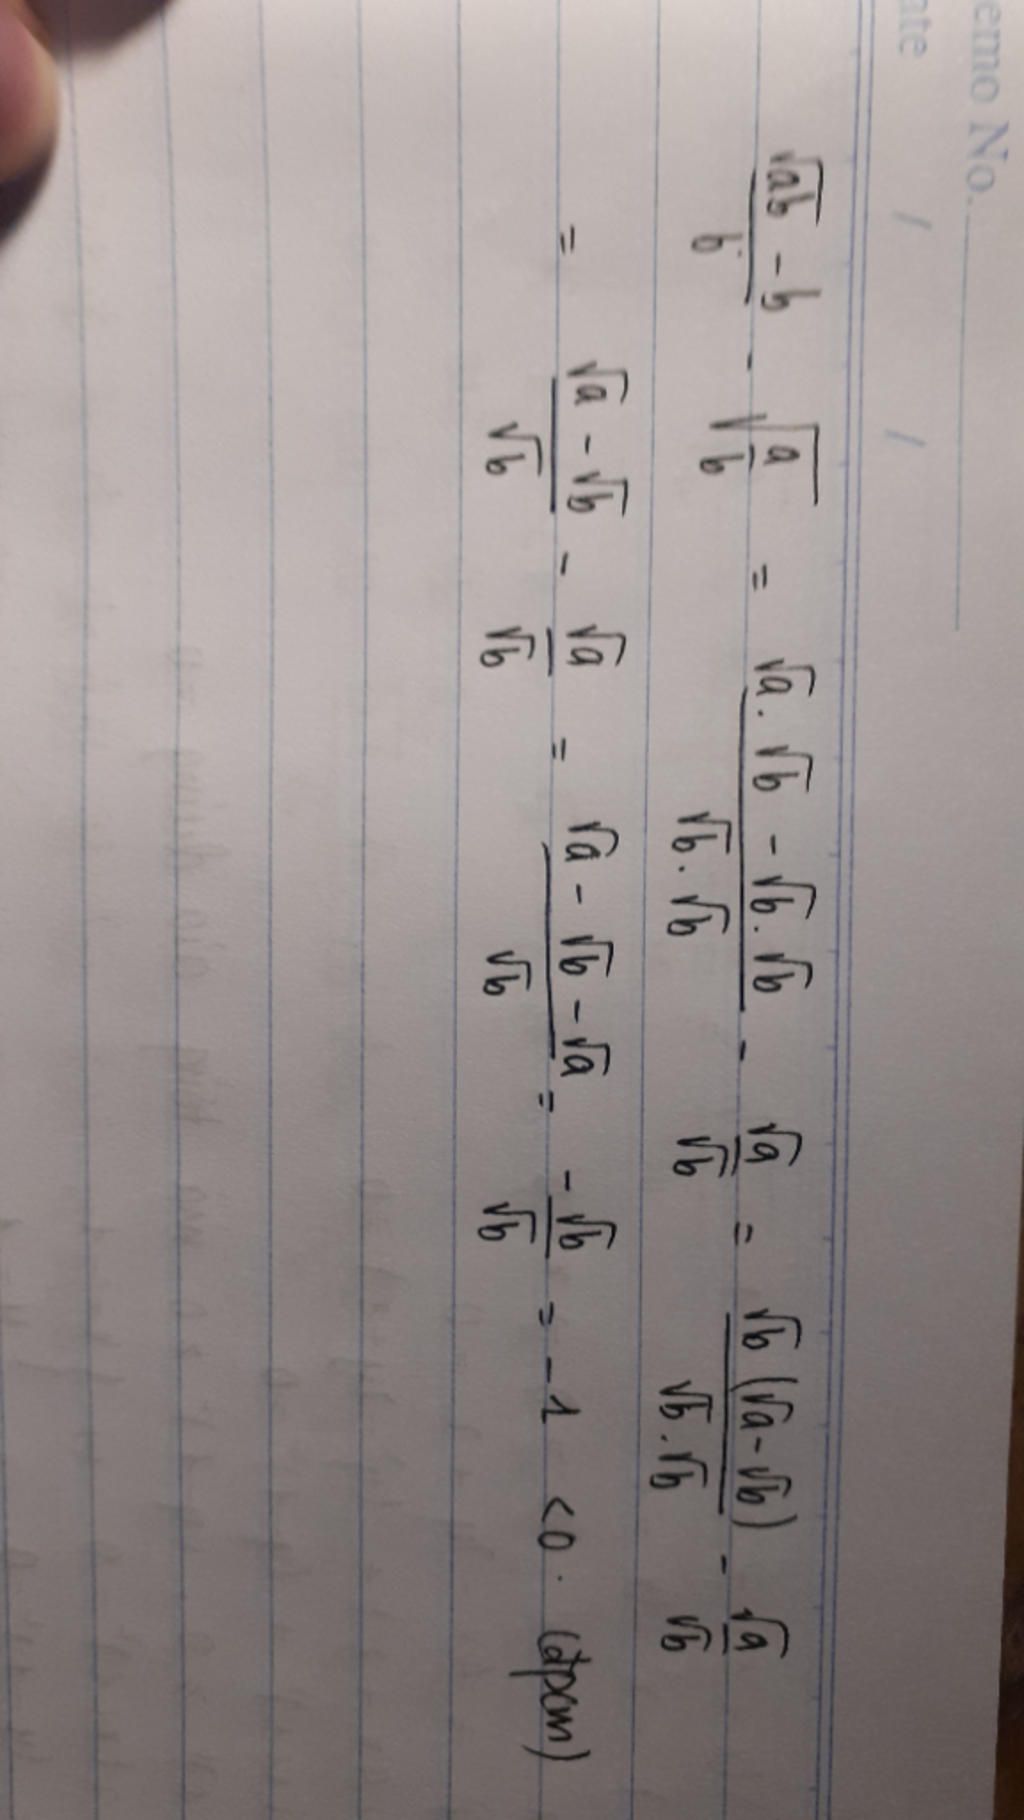 emo No.
ate / /
√ab - b / b - √(a/b) = √a . √b - √b . √b / √b . √b - √a / √b = √b (√a - √b) / √b . √b - √a / √b
= √a - √b / √b - √a / √b = √a - √b - √a / √b = -√b / √b = -1 < 0 . (đpcm)